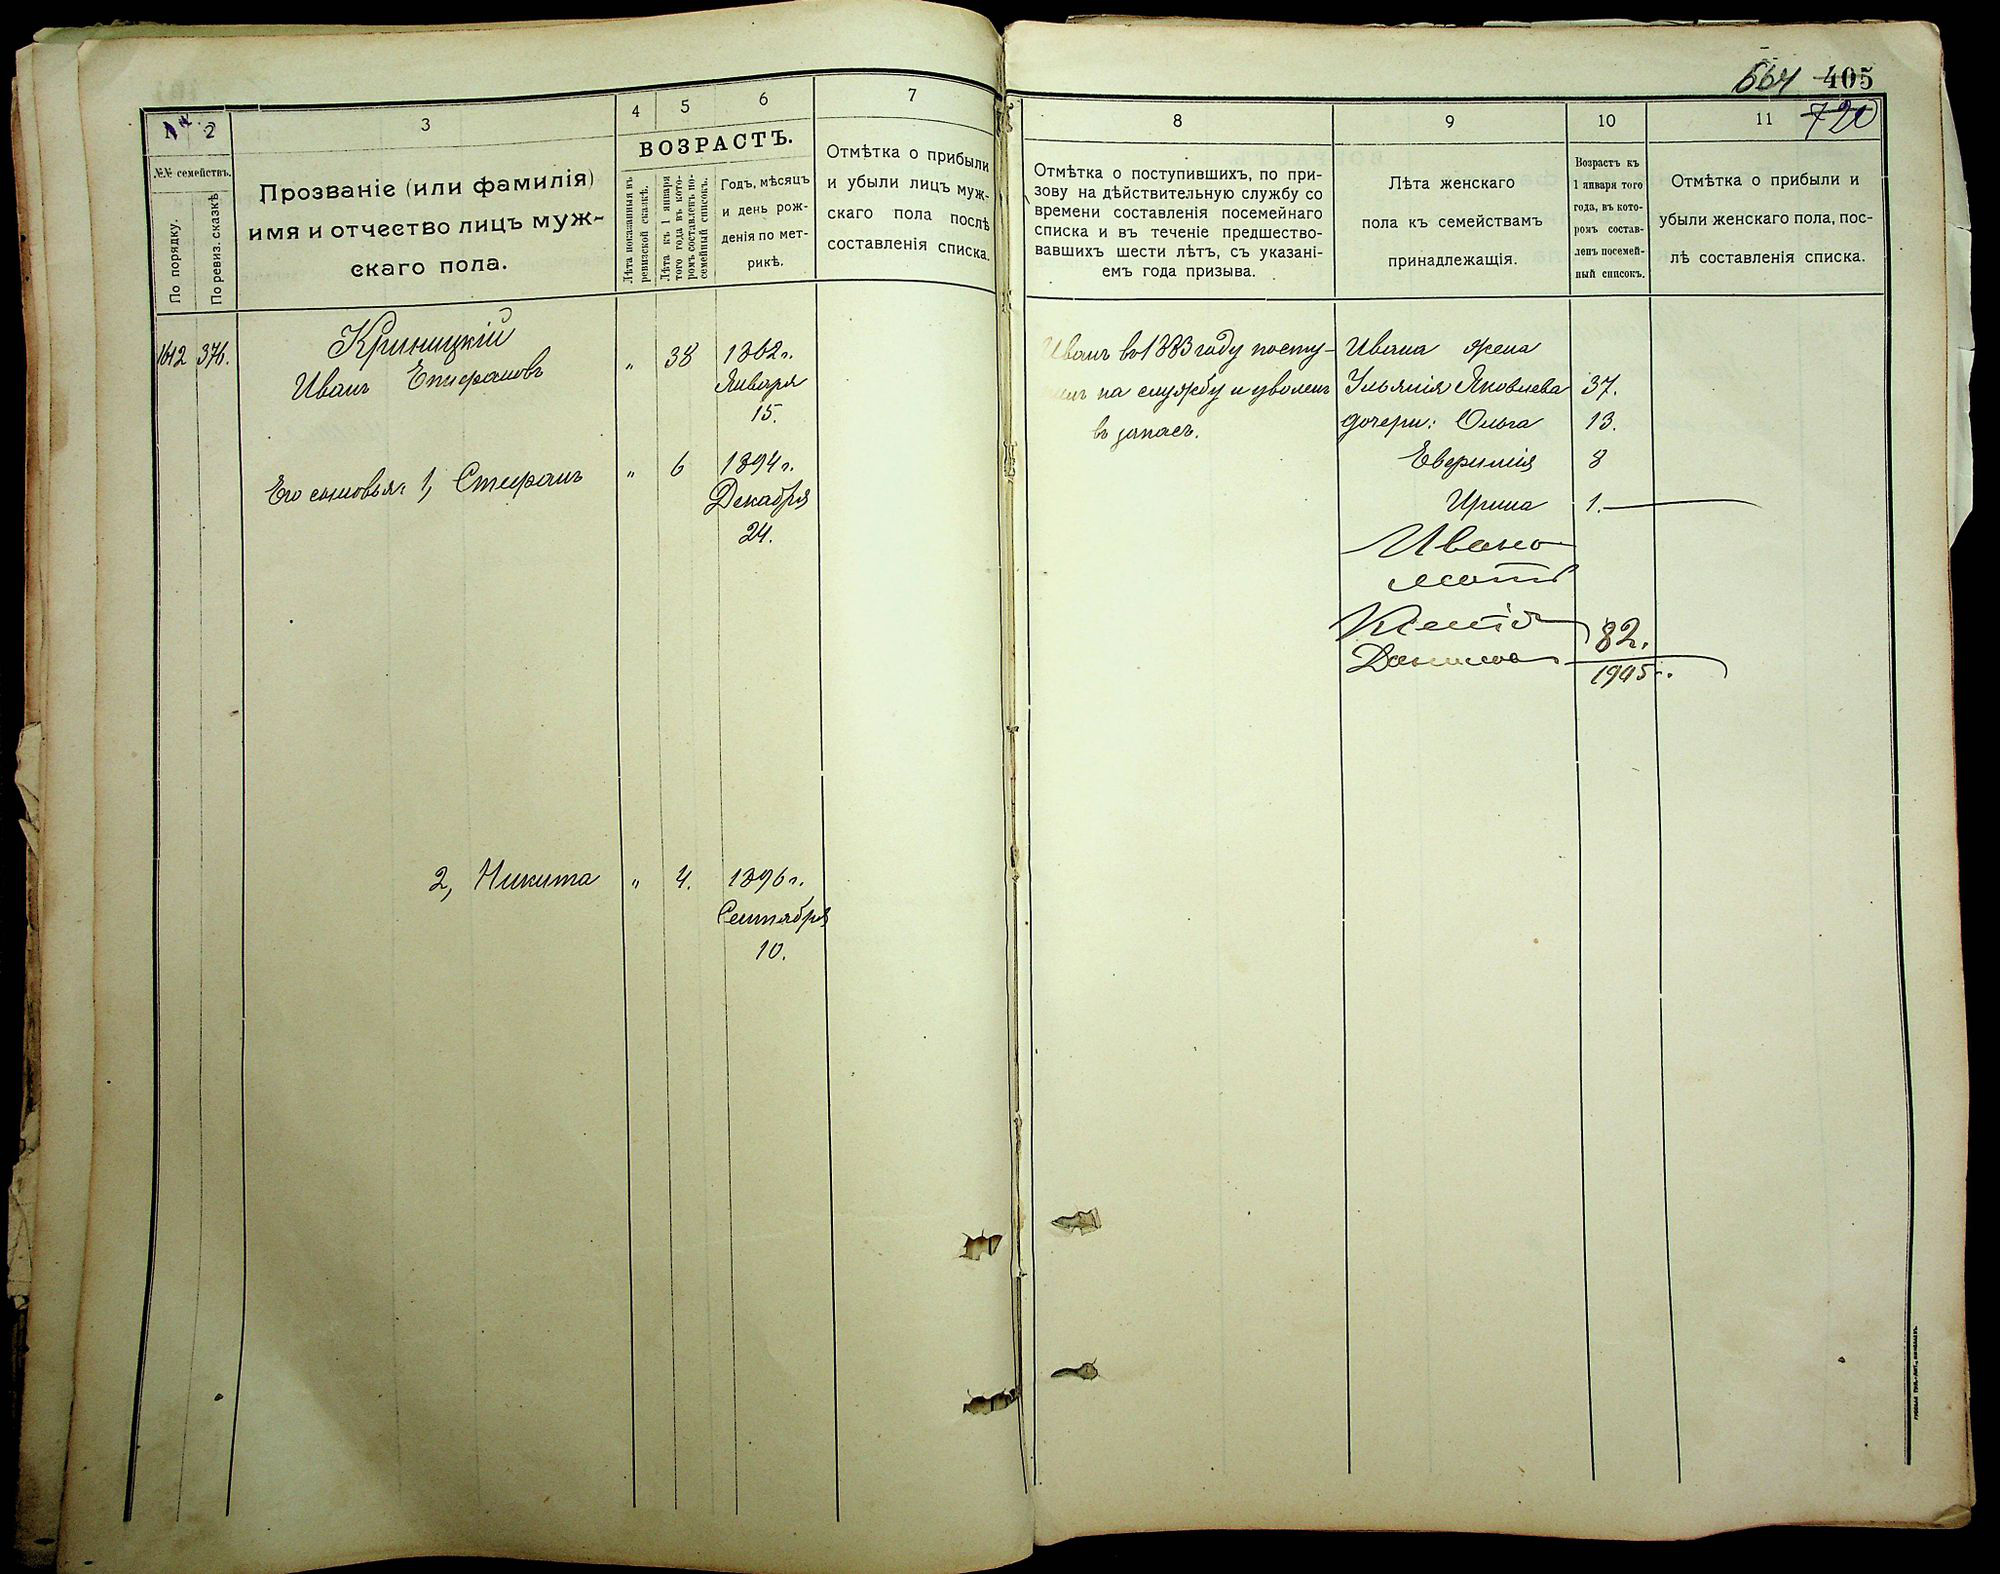 664 405
720
1 2 3 4 5 6 7
№№ семействъ.
По порядку.
По ревиз. сказкѣ
Прозваніе (или фамилія)
имя и отчество лицъ муж-
скаго пола.
ВОЗРАСТЪ.
Лѣта показанныя въ
ревизской сказкѣ.
Лѣта къ 1 января
того года въ кото-
ромъ составленъ по-
семейный списокъ.
Годъ, мѣсяцъ
и день рож-
денія по мет-
рикѣ.
Отмѣтка о прибыли
и убыли лицъ муж-
скаго пола послѣ
составленія списка.
1612 376. Криницкій
Иванъ Епифановъ " 38 1862 г.
Января
15.
Его сыновья: 1, Стефанъ " 6 1894 г.
Декабря
24.
2, Никита " 4. 1896 г.
Сентября
10.
8 9 10 11
Отмѣтка о поступившихъ, по при-
зову на дѣйствительную службу со
времени составленія посемейнаго
списка и въ теченіе предшество-
вавшихъ шести лѣтъ, съ указані-
емъ года призыва.
Лѣта женскаго
пола къ семействамъ
принадлежащія.
Возрастъ къ
1 января того
года, въ кото-
ромъ состав-
ленъ посемей-
ный списокъ.
Отмѣтка о прибыли и
убыли женскаго пола, пос-
лѣ составленія списка.
Иванъ въ 1883 году посту-
пилъ на службу и уволенъ
въ запасъ.
Ивана жена
Ульянія Яковлева 37.
дочери: Ольга 13.
Евфимія 8
Ирина 1.
Ивана
мать
Данилова 82.
1905 г.